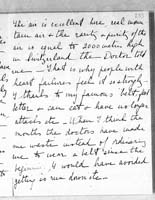 The air is excellent here real moun
tain air & the rarity & purity of the
air is equal to 2000 metres high
in Switzerland the Doctor told
me — That is why people with
heart failures feel it so strongly —
Thanks to my famous belt, I feel
better, & can eat & have no longer
attacks etc — When I think the
months the doctors have made
me waste instead of
me to wear a belt since the
begin. I would have avoided
getting in such a down state —